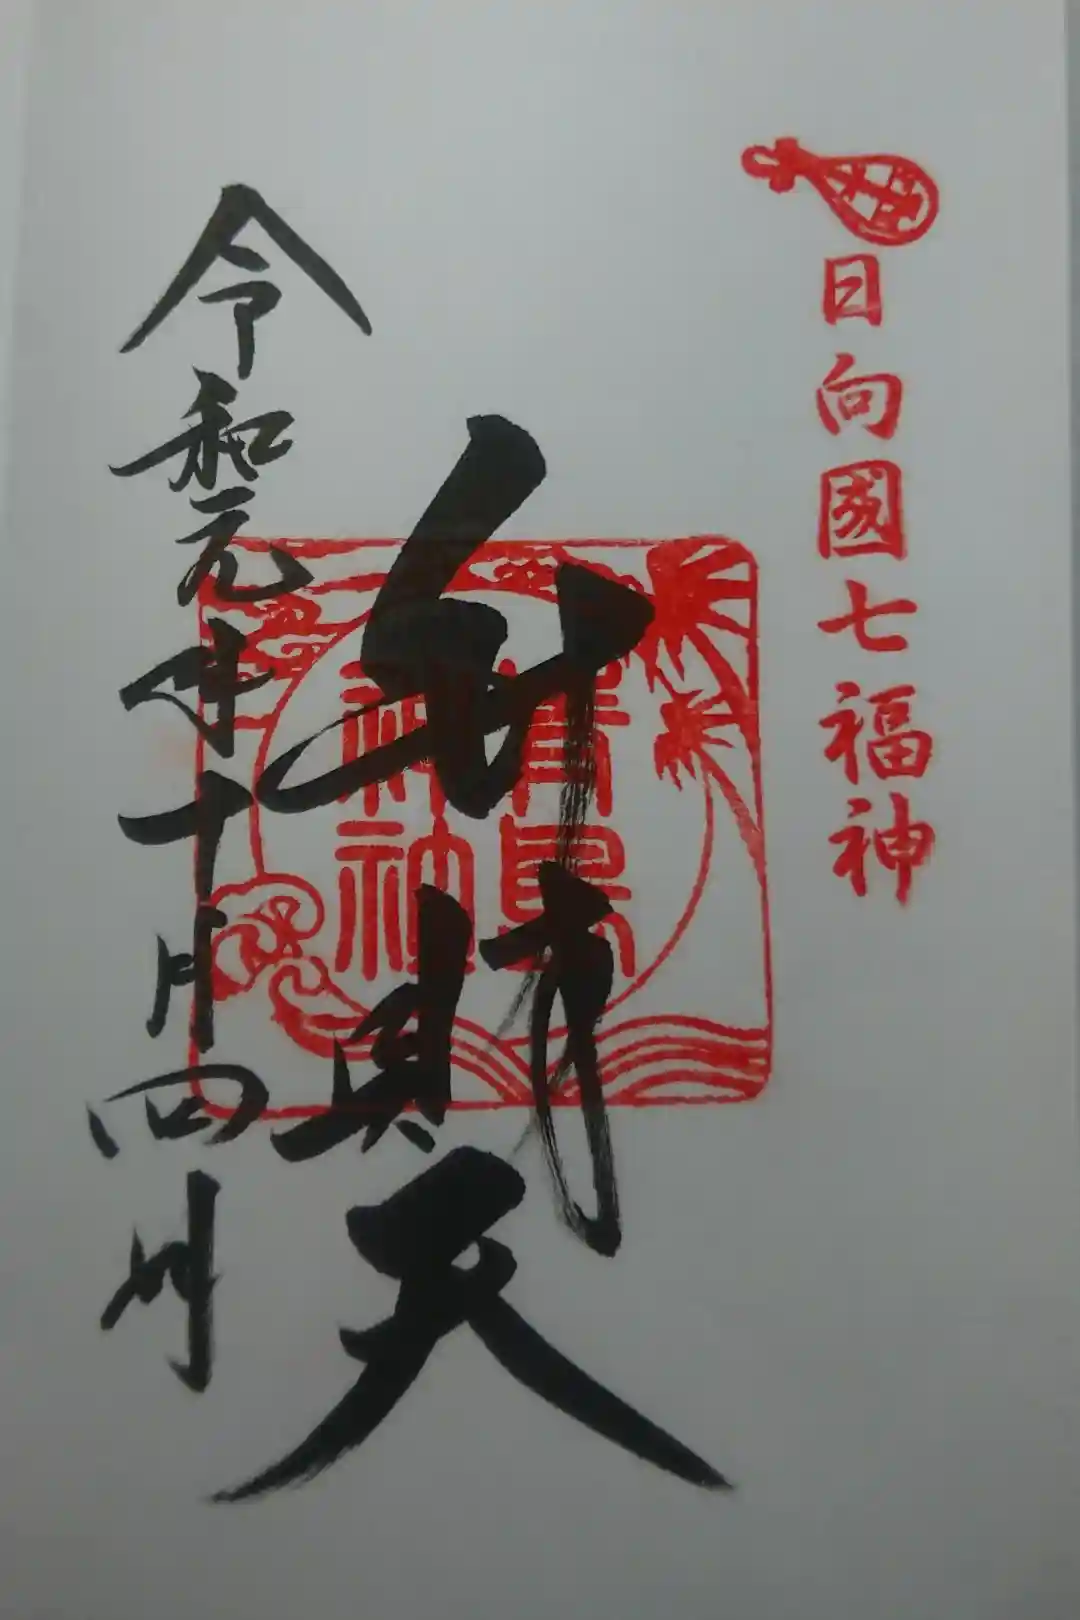 日向國七福神
弁財天
青島
神社
令和元年十月四日